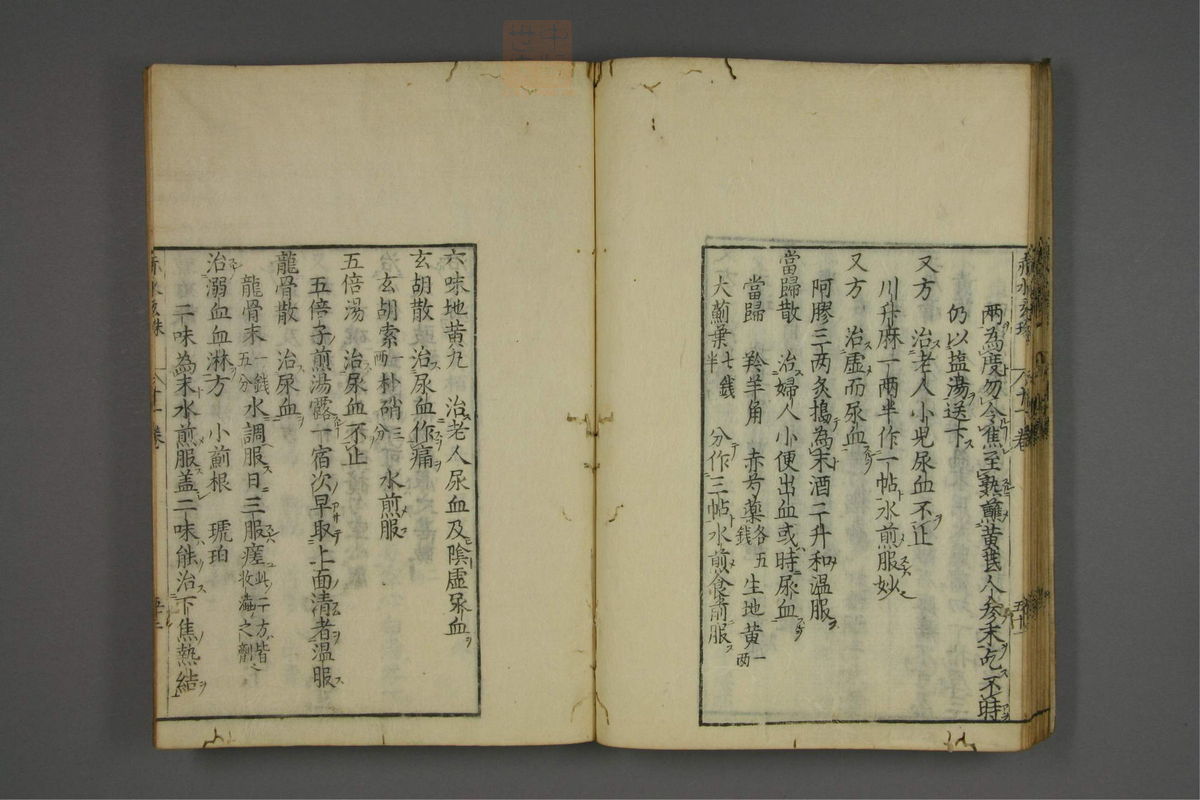 赤水玄珠 八十一卷 五十一
兩為度勿令焦至熟蘸黃芪人參末吃不時
仍以塩湯送下
又方 治老人小兒尿血不止
川升麻一兩半作一帖水煎服妙
又方 治虛而尿血
阿膠三两炙搗為末酒二升和温服
當歸散 治婦人小便出血或時尿血
當歸 羚羊角 赤芍藥各五錢 生地黄一两
大薊葉七錢半 分作三帖水煎食前服
六味地黄丸 治老人尿血及陰虛尿血
玄胡散 治尿血作痛
玄胡索一两 朴硝三分 水煎服
五倍湯 治尿血不止
五倍子煎湯露一宿次早取上面清者温服
龍骨散 治尿血
龍骨末一錢五分水調服日三服瘥此二方皆收濇之劑
治溺血血淋方 小薊根 琥珀
二味為末水煎服盖二味能治下焦熱結
赤水玄珠 卷